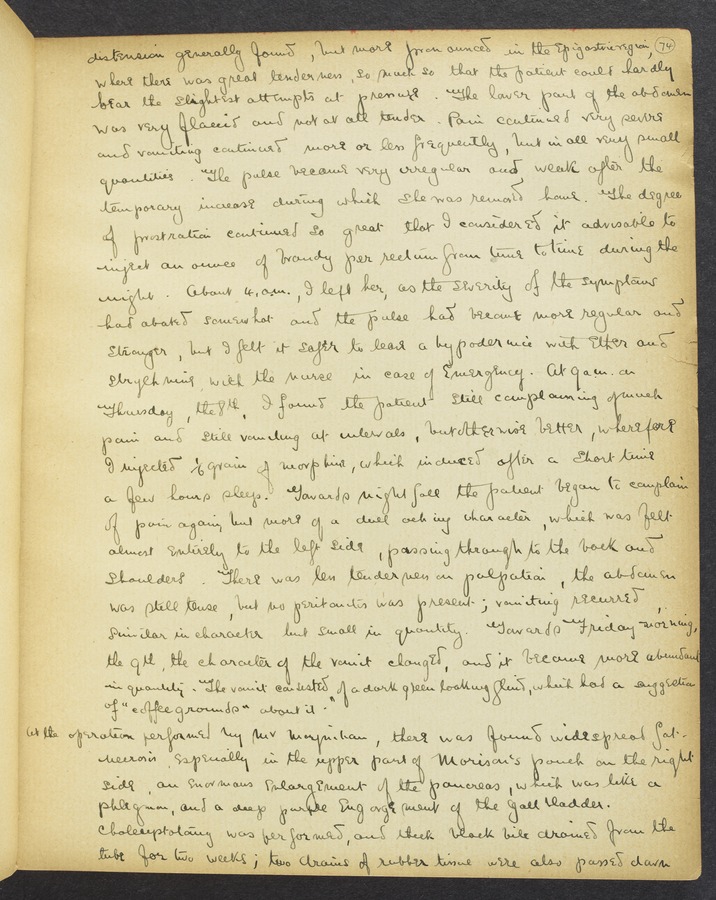 74
distension generally found, but more pronounced in the Epigastric region,
where there was great tenderness, so much so that the patient could hardly
bear the slightest attempts at pressure. The lower part of the abdomen
was very flaccid and not at all tender. Pain continued very severe
and vomiting continued more or less frequently, but in all very small
quantities. The pulse became very irregular and weak after the
temporary increase during which she was removed home. The degree
of prostration continued so great that I considered it advisable to
inject an ounce of brandy per rectum from time to time during the
night. About 4. a.m., I left her, as the severity of the symptoms
had abated somewhat and the pulse had become more regular and
stronger, but I felt it safer to leave a hypodermic with Ether and
strychnine with the nurse in case of Emergency. At 9 a.m. on
Thursday, the 8th, I found the patient still complaining of much
pain and still vomiting at intervals, but otherwise better, wherefore
I injected 1/6 grain of morphine, which induced after a short time
a few hours sleep. Towards nightfall the patient began to complain
of pain again, but more of a dull aching character, which was felt
almost entirely to the left side, passing through to the back and
shoulders. There was less tenderness on palpation, the abdomen
was still tense, but no peritonitis was present; vomiting recurred,
similar in character but small in quantity. Towards Friday morning,
the 9th, the character of the vomit changed, and it became more abundant
in quantity. The vomit consisted of a dark green looking fluid, which had a suggestion
of "coffee grounds" about it."
At the operation performed by Mr Moynihan, there was found widespread fat-
necrosis, especially in the upper part of Morison's pouch on the right
side, an enormous enlargement of the pancreas, which was like a
phlegmon, and a deep purple engorgement of the gall bladder.
Cholecystotomy was performed, and thick black bile drained from the
tube for two weeks; two drains of rubber tissue were also passed down